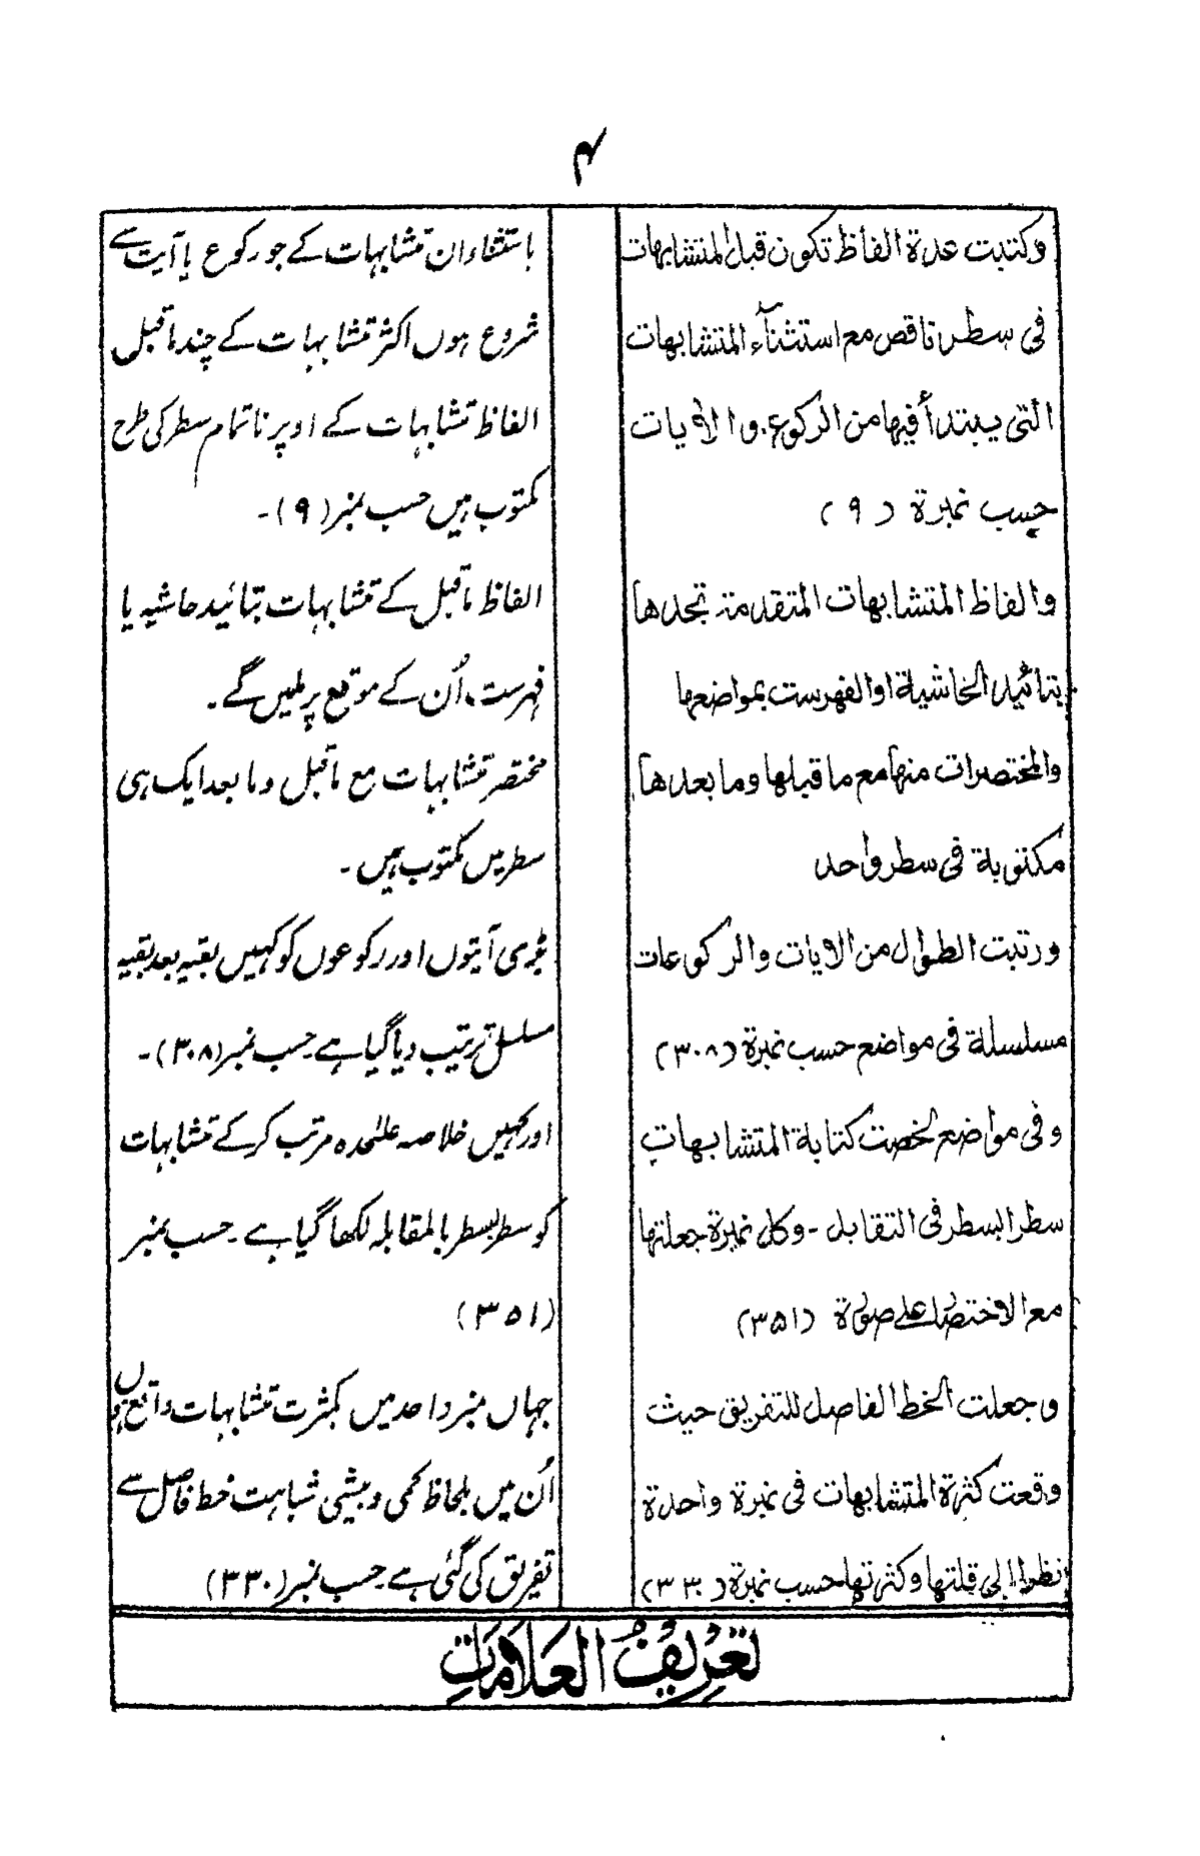 ۴
وكتبت عدة الفاظ تكون قبل المتشابهات
فى سطر ناقص مع استثنآء المتشابهات
التى يبتدأ فيها من الركوع. والايات
حسب نمبرة (۹)
والفاظ المتشابهات المتقدمة تجدها
بتائيد الحاشية او الفهرست بمواضعها
والمختصرات منها مع ما قبلها وما بعدها
مكتوبة فى سطر واحد
ورتبت الطوال من الايات والركوعات
مسلسلة فى مواضع حسب نمبرة (۳۰۸)
وفى مواضع لخصت كتابة المتشابهات
سطرا بسطر فى التقابل - وكل نمبرة جعلتها
مع الاختصار على صورة (۳۵۱)
وجعلت الخط الفاصل للتفريق حيث
وقعت كثرة المتشابهات فى نمبرة واحدة
نظرا الى قلتها وكثرتها حسب نمبرة (۳۳۰)
باستثناء ان تشابہات کے جو رکوع یا آیت سے
شروع ہوں اکثر تشابہات کے چند ماقبل
الفاظ تشابہات کے اوپر ناتمام سطر کی طرح
مکتوب ہیں حسب نمبر (۹)۔
الفاظ ماقبل کے تشابہات بتائید حاشیہ یا
فہرست، اُن کے موقع پر ملیں گے۔
مختصر تشابہات مع ماقبل وما بعد ایک ہی
سطر میں مکتوب ہیں۔
بڑی آیتوں اور رکوعوں کو کہیں بقیہ بعد بقیہ
مسلسل ترتیب دیا گیا ہے حسب نمبر (۳۰۸)۔
اور کہیں خلاصہ علٰحدہ مرتب کر کے تشابہات
کو سطر بسطر بالمقابلہ لکھا گیا ہے حسب نمبر
(۳۵۱)
جہاں نمبر واحد میں بکثرت تشابہات واقع ہوں
اُن میں بلحاظ کمی و بیشی شباہت خط فاصل سے
تفریق کی گئی ہے حسب نمبر (۳۳۰)
تَعْرِيْفُ الْعَلَامَاتِ